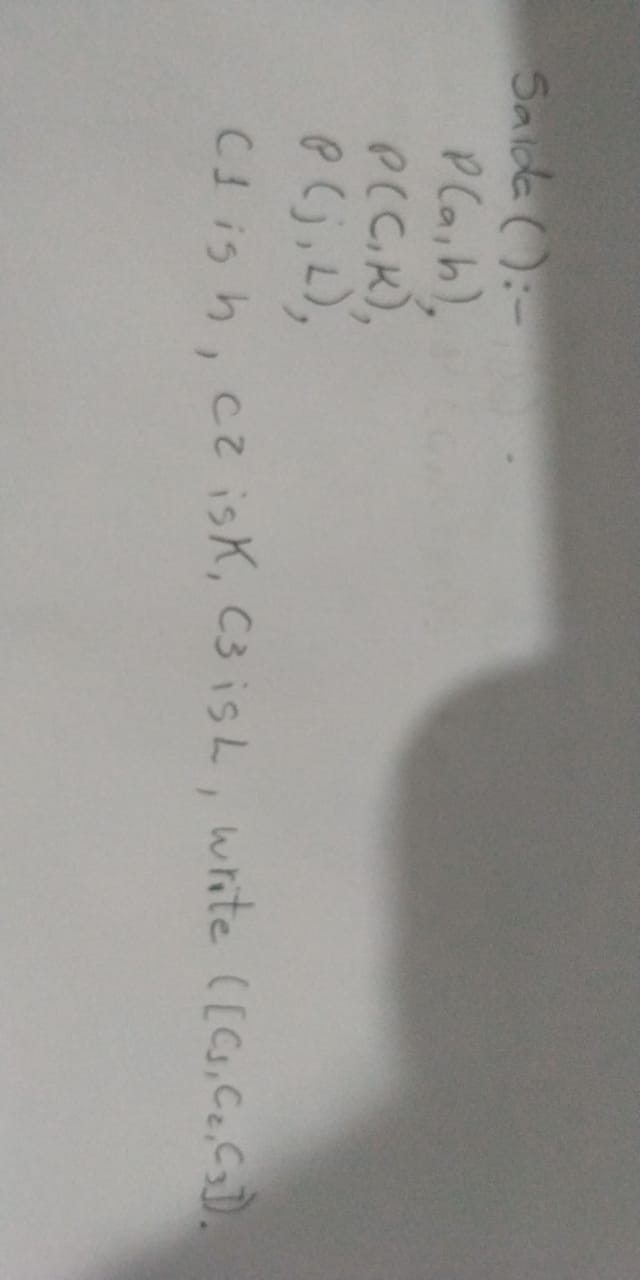 Saida():-
P(a,h),
P(C,K),
P(j,L),
C1 is h, C2 is K, C3 is L, write ([C1,C2,C3]).